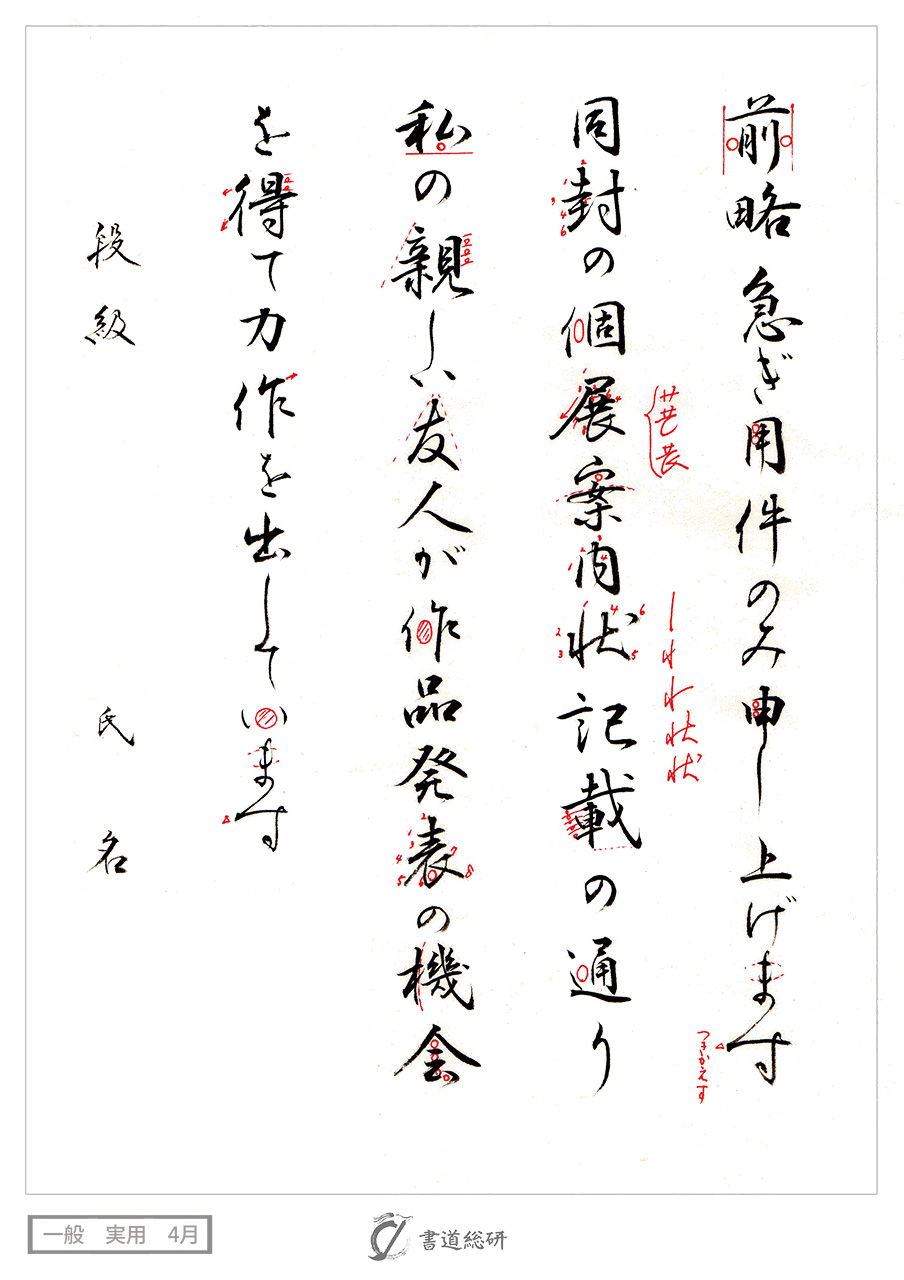 前略 急ぎ用件のみ申し上げます
つきかえす
同封の個展案内状記載の通り
私の親しい友人が作品発表の機会
を得て力作を出しています
段級 氏名
一般 実用 4月
書道総研